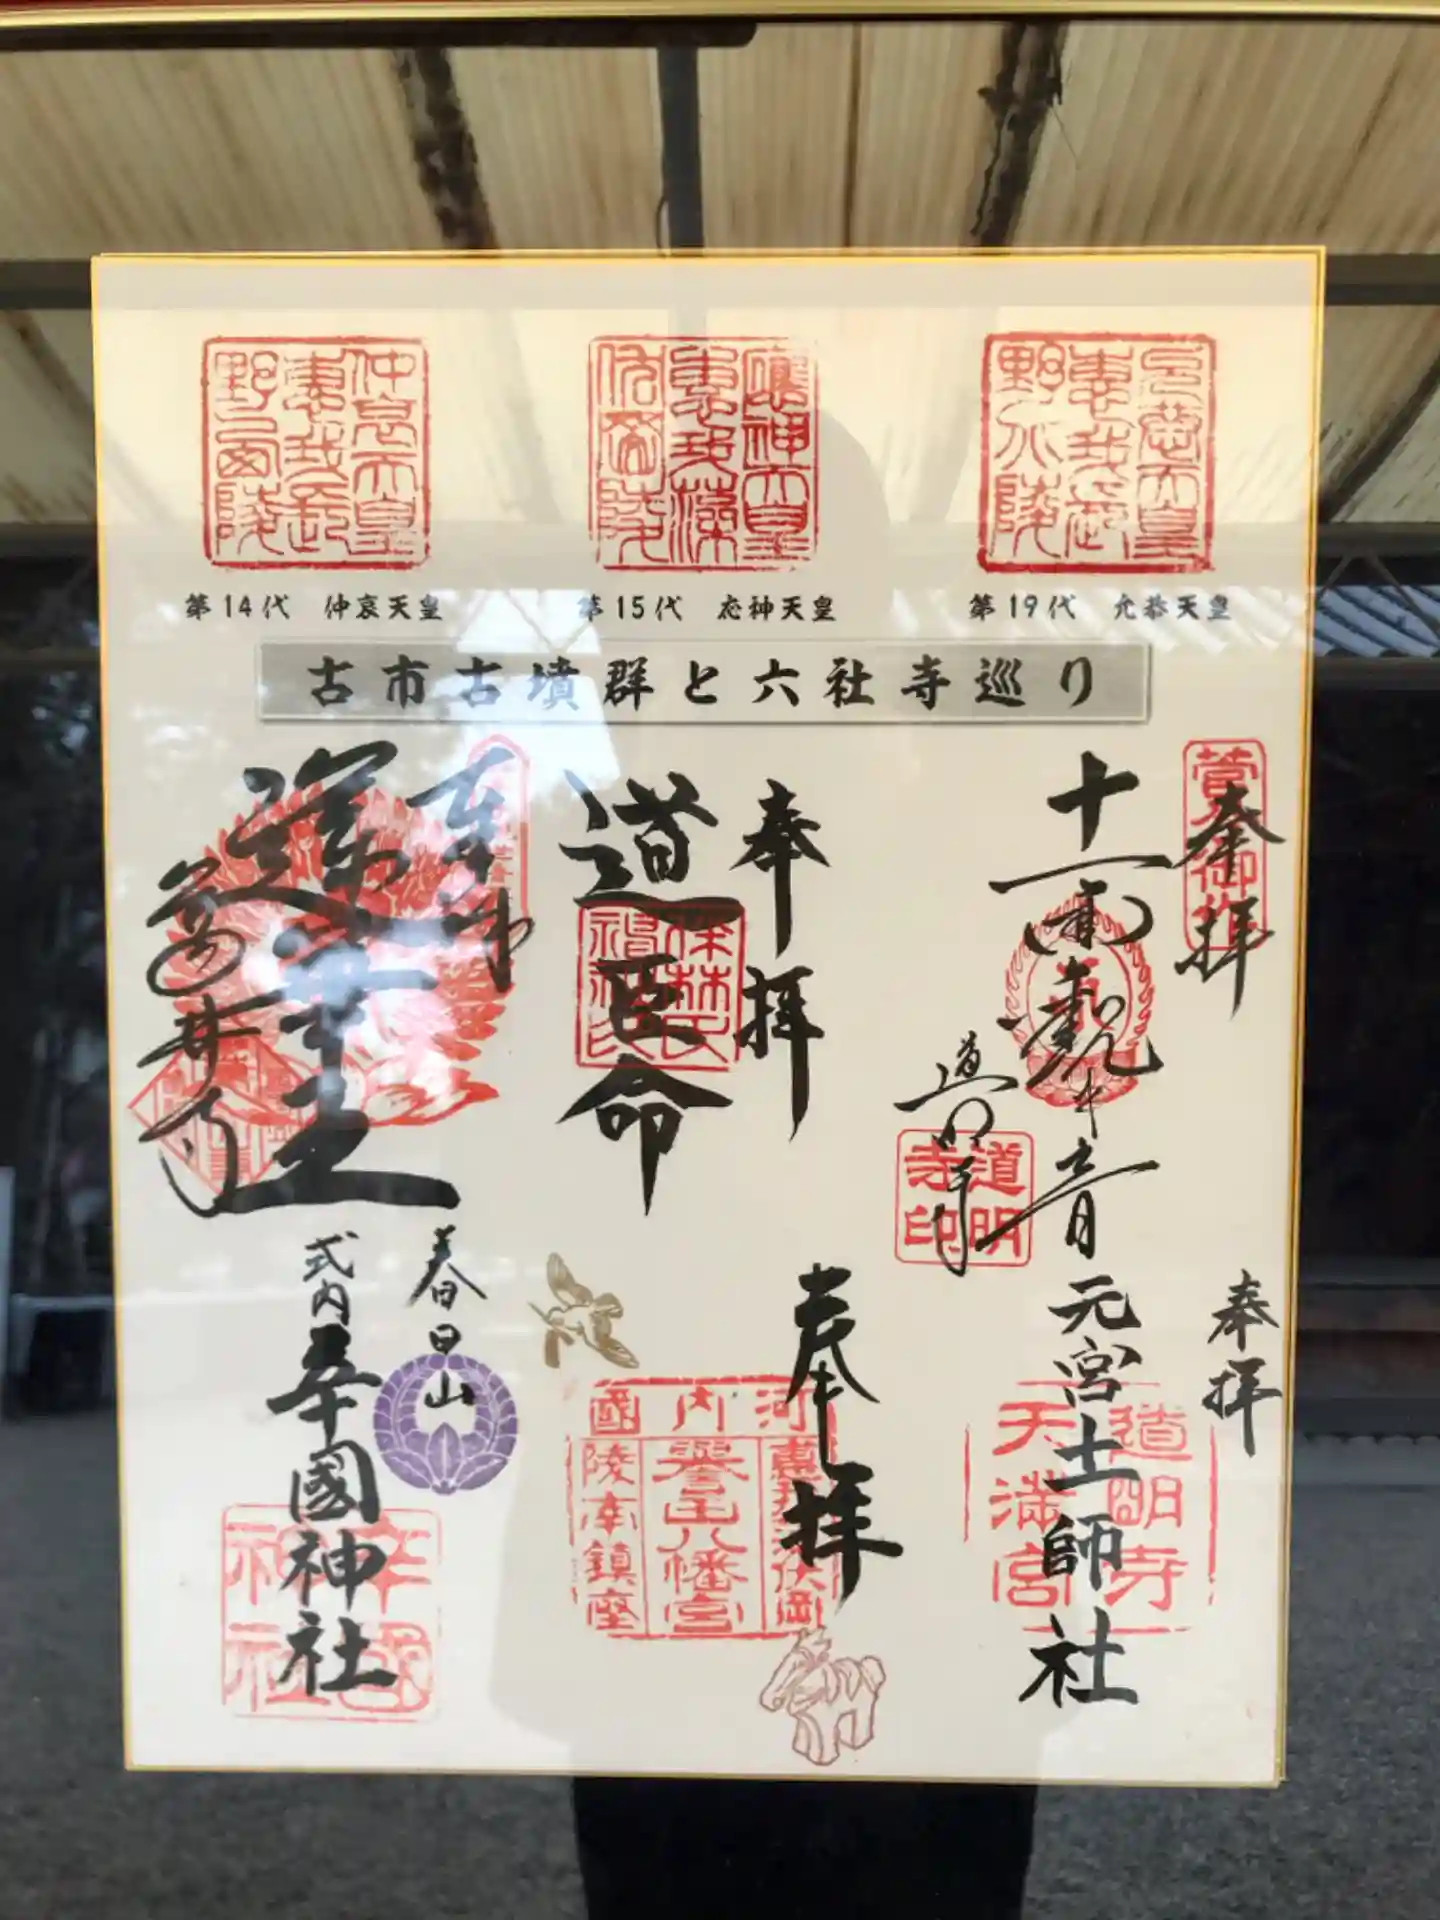 仲哀天皇
恵我長
野西陵
應神天皇
惠我藻
伏岡陵
允恭天皇
恵我長
野北陵
第14代 仲哀天皇
第15代 応神天皇
第19代 允恭天皇
古市古墳群と六社寺巡り
奉拝
十一面観世音
道明寺
道明寺印
奉拝
道臣命
伴林氏神社
葛井寺
奉拝
元宮土師社
道明寺
天満宮
奉拝
河内國
惠我藻伏岡
誉田八幡宮
陵南鎮座
春日山
式内辛國神社
辛國神社